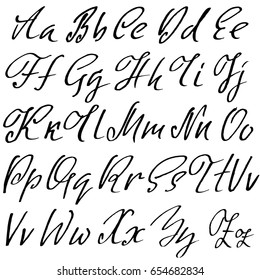 Aa Bb Cc Dd Ee
Ff Gg Hh Ii Jj
Kk Ll Mm Nn Oo
Pp Qq Rr Ss Tt Uu
Vv Ww Xx Yy Zz
shutterstock.com · 654682834